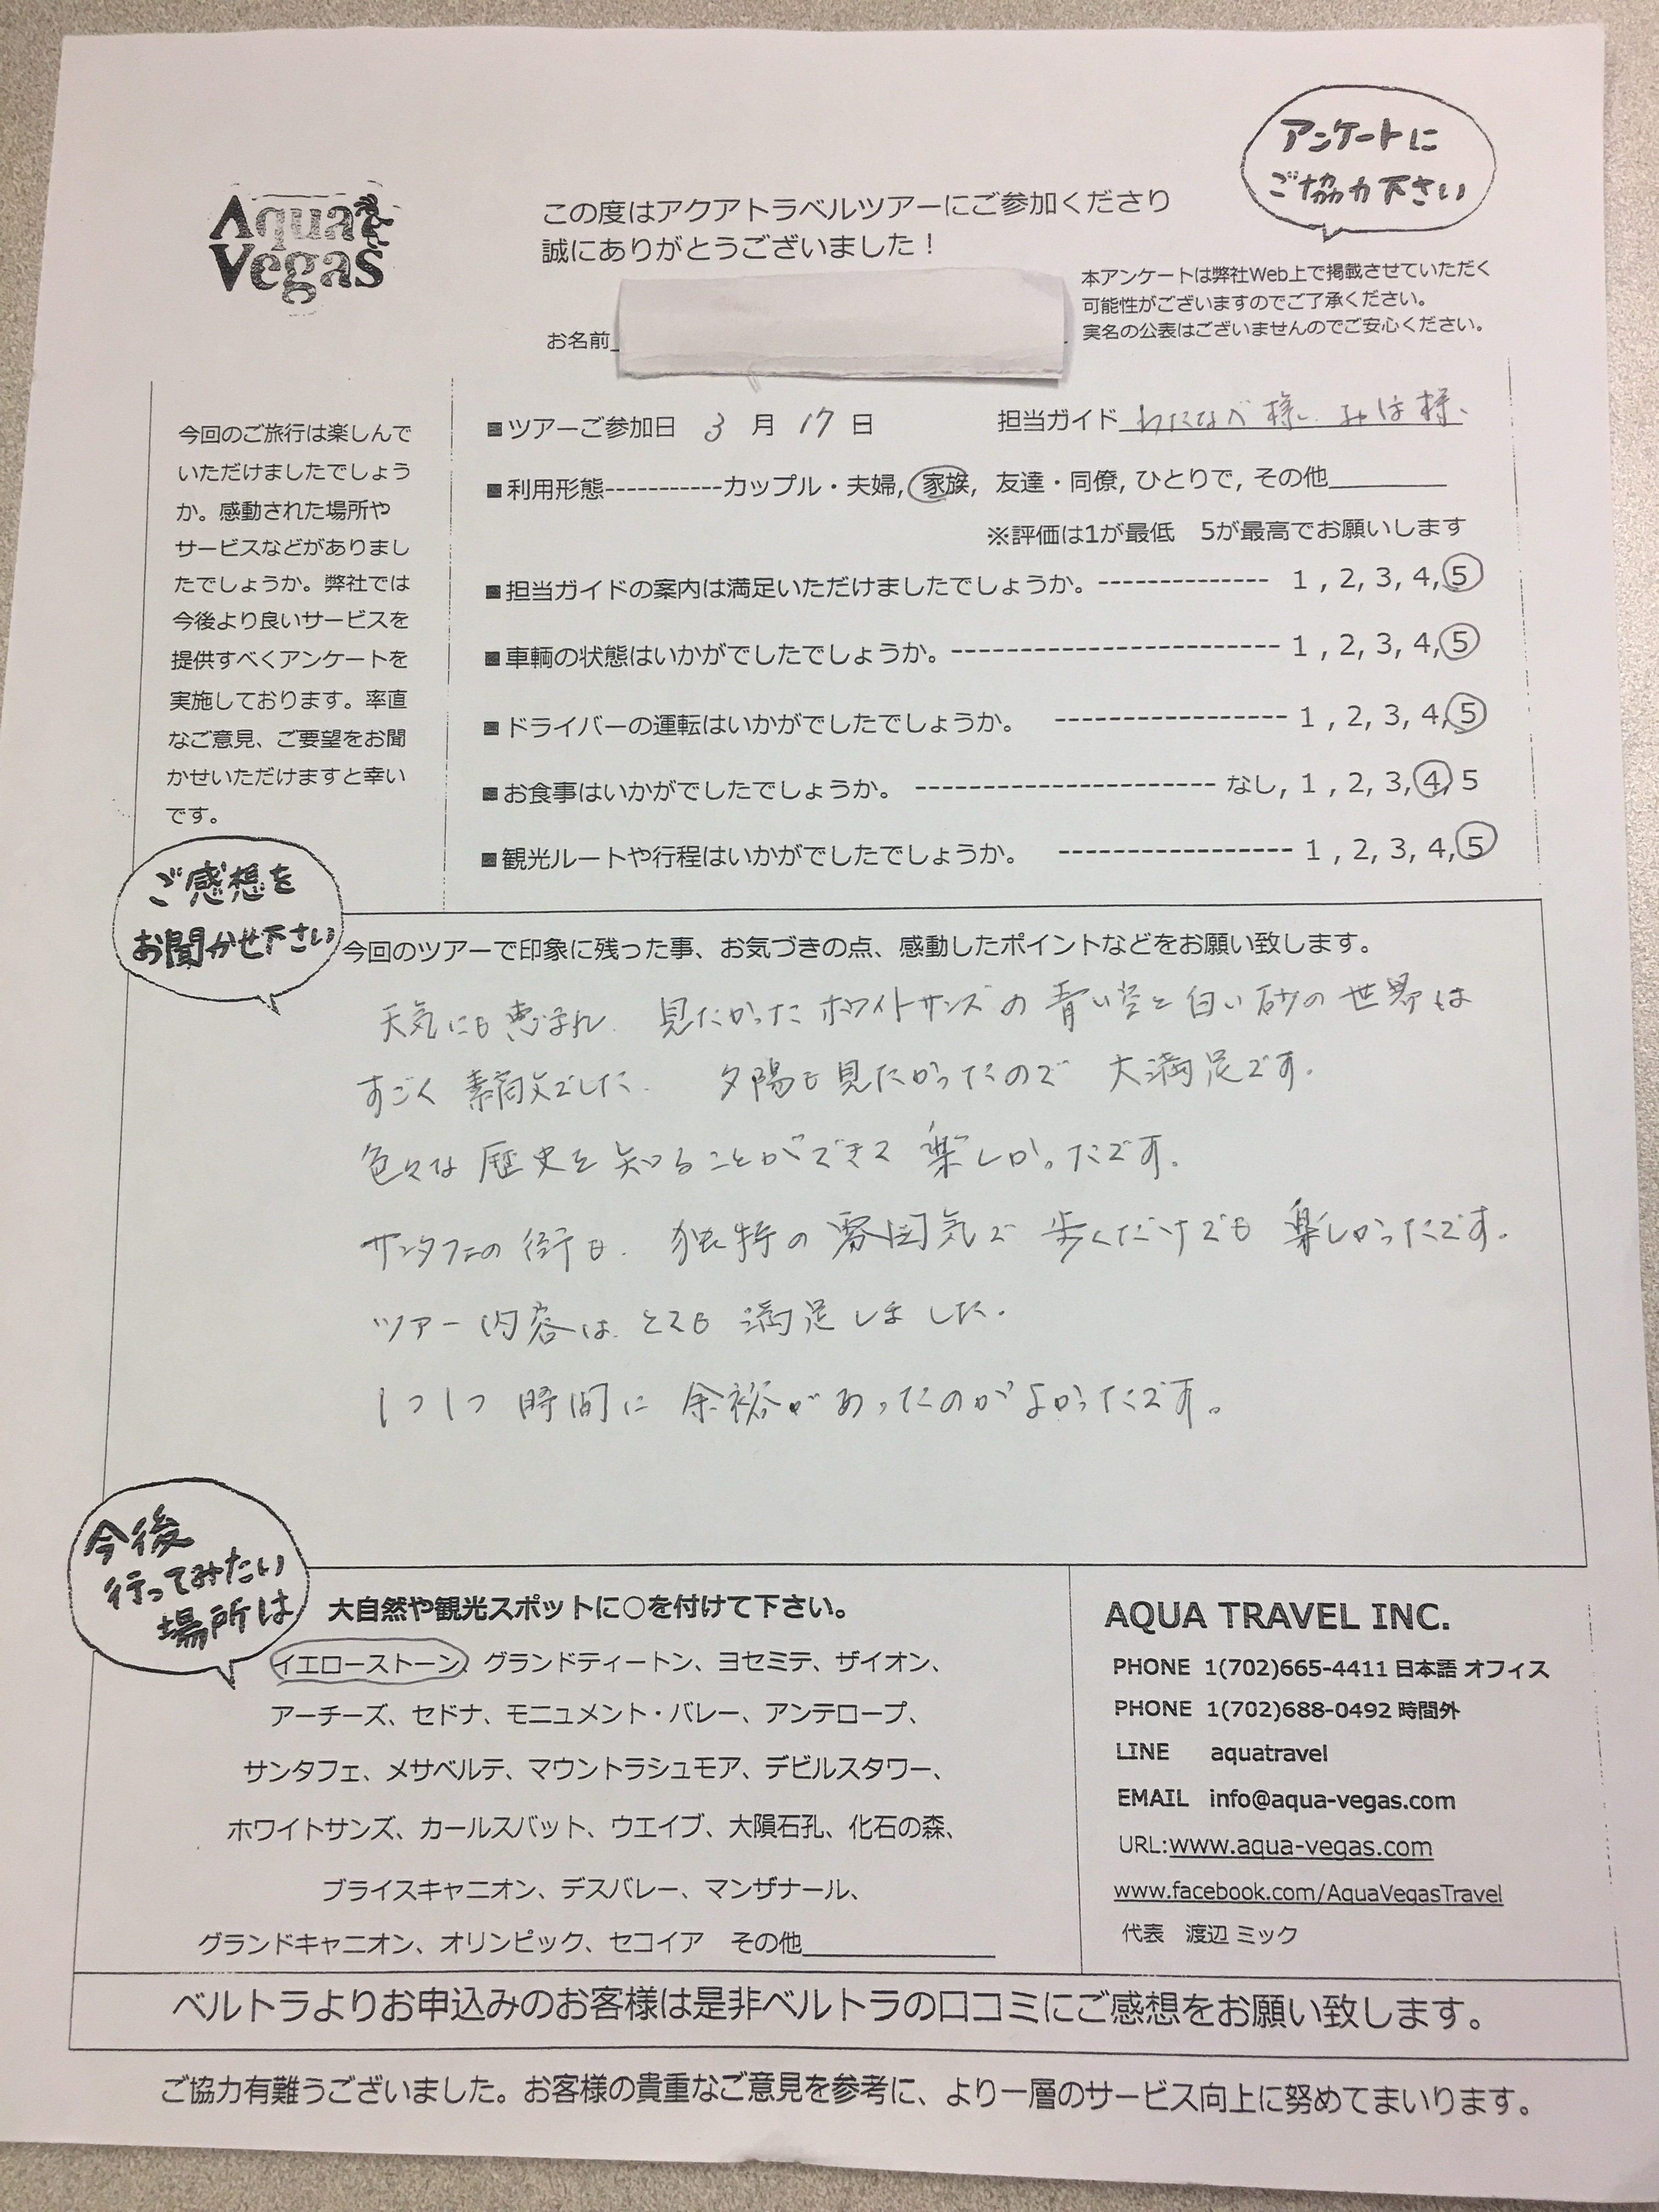 アンケートに
ご協力下さい
Aqua
Vegas
この度はアクアトラベルツアーにご参加くださり
誠にありがとうございました！
本アンケートは弊社Web上で掲載させていただく
可能性がございますのでご了承ください。
実名の公表はございませんのでご安心ください。
お名前
今回のご旅行は楽しんで
いただけましたでしょう
か。感動された場所や
サービスなどがありまし
たでしょうか。弊社では
今後より良いサービスを
提供すべくアンケートを
実施しております。率直
なご意見、ご要望をお聞
かせいただけますと幸い
です。
■ツアーご参加日 3 月 17 日 担当ガイド わたなべ様、みほ様、
■利用形態-----------カップル・夫婦, 家族, 友達・同僚, ひとりで, その他
※評価は1が最低 5が最高でお願いします
■担当ガイドの案内は満足いただけましたでしょうか。------------- 1 , 2, 3, 4, 5
■車輌の状態はいかがでしたでしょうか。------------------------- 1 , 2, 3, 4, 5
■ドライバーの運転はいかがでしたでしょうか。 ----------------- 1 , 2, 3, 4, 5
■お食事はいかがでしたでしょうか。 ---------------------- なし, 1 , 2, 3, 4, 5
■観光ルートや行程はいかがでしたでしょうか。 ----------------- 1 , 2, 3, 4, 5
ご感想を
お聞かせ下さい
今回のツアーで印象に残った事、お気づきの点、感動したポイントなどをお願い致します。
天気にも恵まれ、見たかったホワイトサンズの青い空と白い砂の世界は
すごく素敵でした。 夕陽も見たかったので 大満足です。
色々な歴史を知ることができて楽しかったです。
サンタフェの街も、独特の雰囲気で歩くだけでも楽しかったです。
ツアー内容は、とても満足しました。
1つ1つ 時間に余裕があったのがよかったです。
今後
行ってみたい
場所は
大自然や観光スポットに○を付けて下さい。
イエローストーン、グランドティートン、ヨセミテ、ザイオン、
アーチーズ、セドナ、モニュメント・バレー、アンテロープ、
サンタフェ、メサベルテ、マウントラシュモア、デビルスタワー、
ホワイトサンズ、カールスバット、ウエイブ、大隕石孔、化石の森、
ブライスキャニオン、デスバレー、マンザナール、
グランドキャニオン、オリンピック、セコイア その他
AQUA TRAVEL INC.
PHONE 1(702)665-4411 日本語 オフィス
PHONE 1(702)688-0492 時間外
LINE aquatravel
EMAIL info@aqua-vegas.com
URL:www.aqua-vegas.com
www.facebook.com/AquaVegasTravel
代表 渡辺 ミック
ベルトラよりお申込みのお客様は是非ベルトラの口コミにご感想をお願い致します。
ご協力有難うございました。お客様の貴重なご意見を参考に、より一層のサービス向上に努めてまいります。